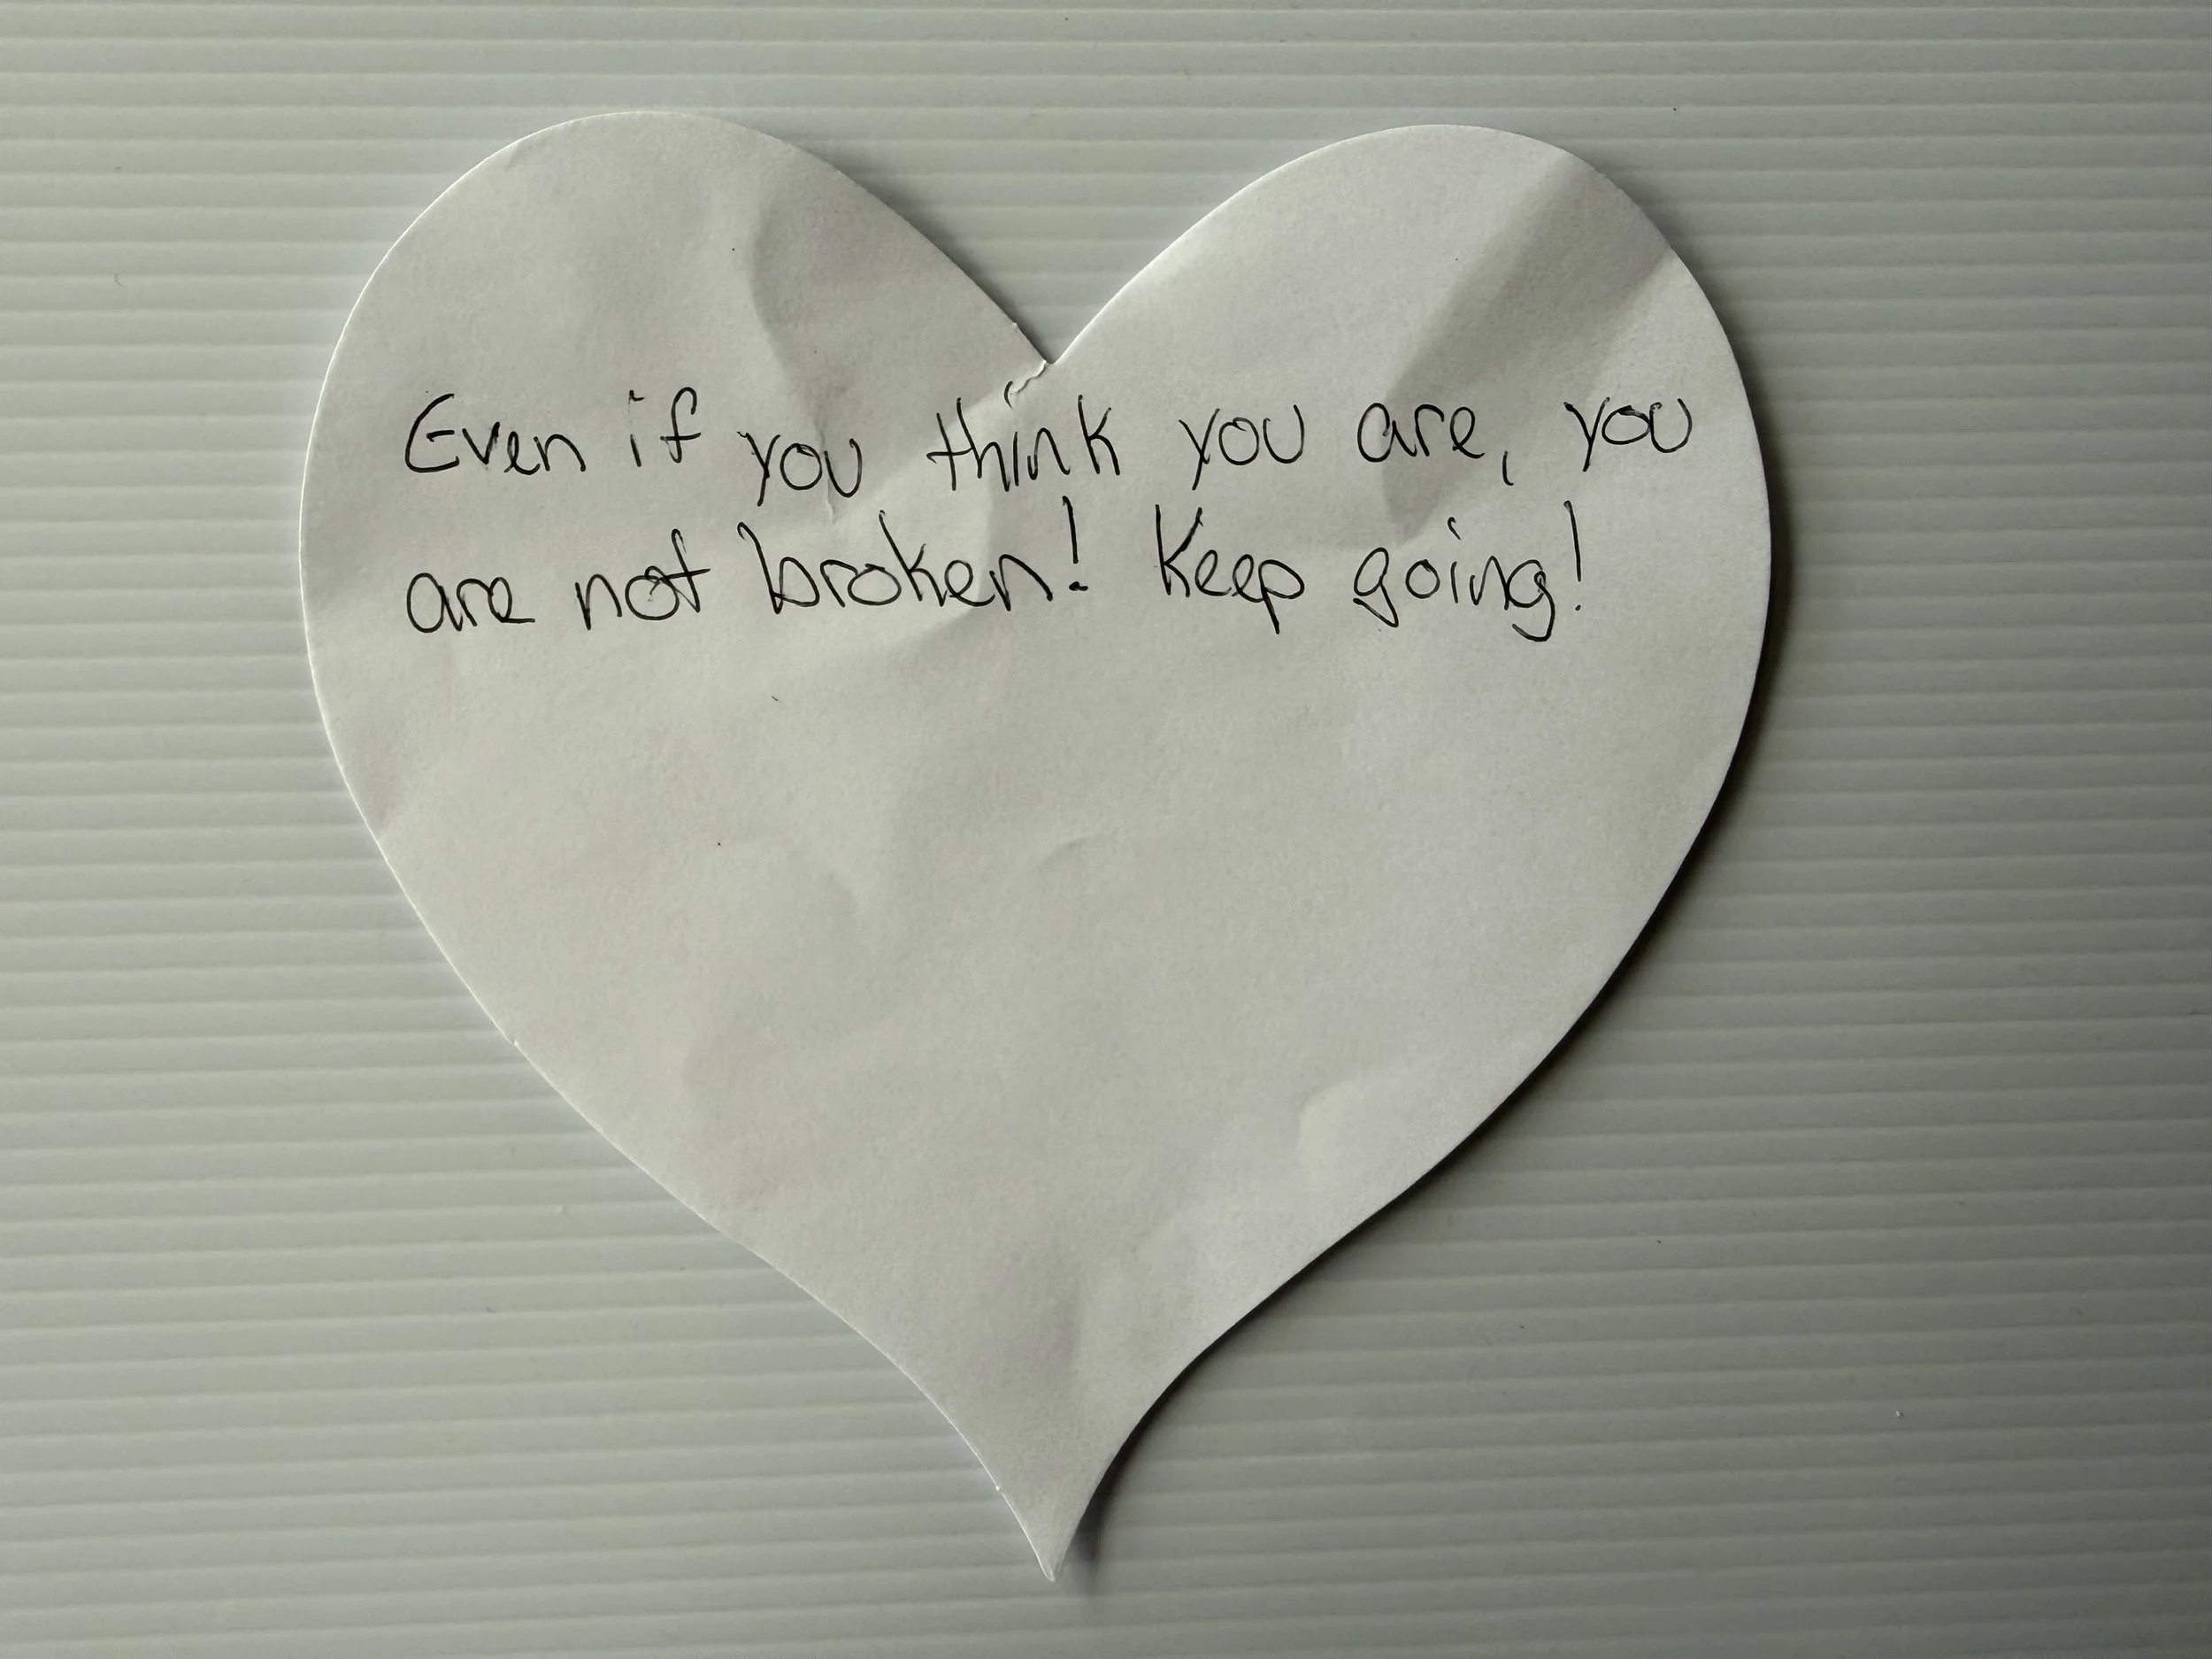 Even if you think you are, you
are not broken! Keep going!